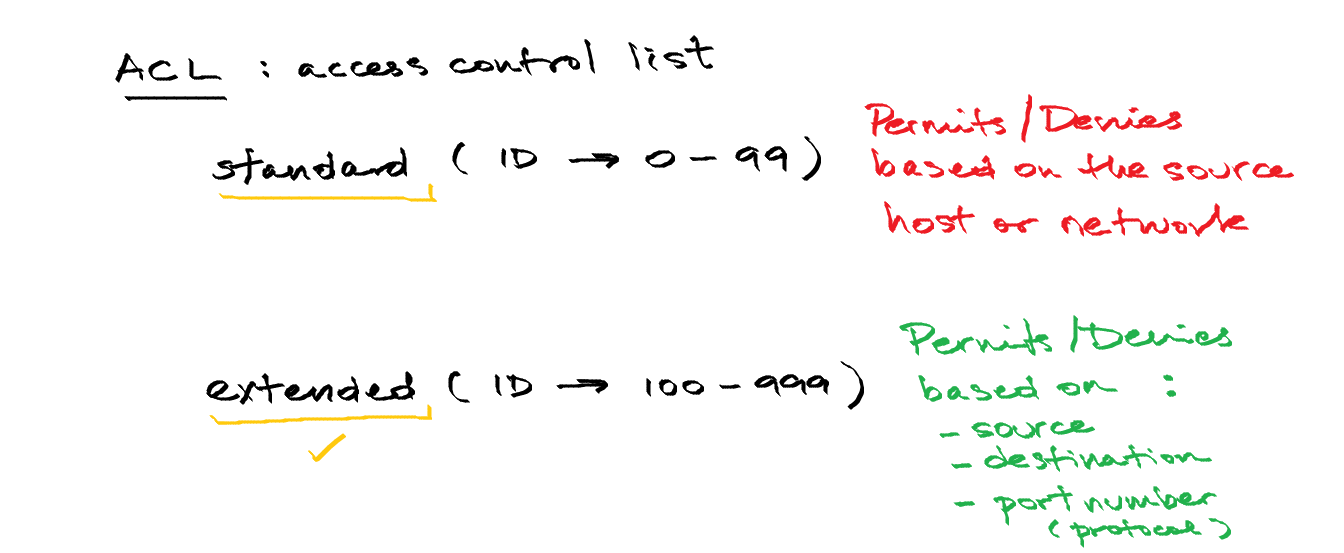 ACL : access control list
standard ( ID → 0 - 99 )
Permits / Denies
based on the source
host or network
extended ( ID → 100 - 999 )
Permits / Denies
based on :
- source
- destination
- port number
( protocol )